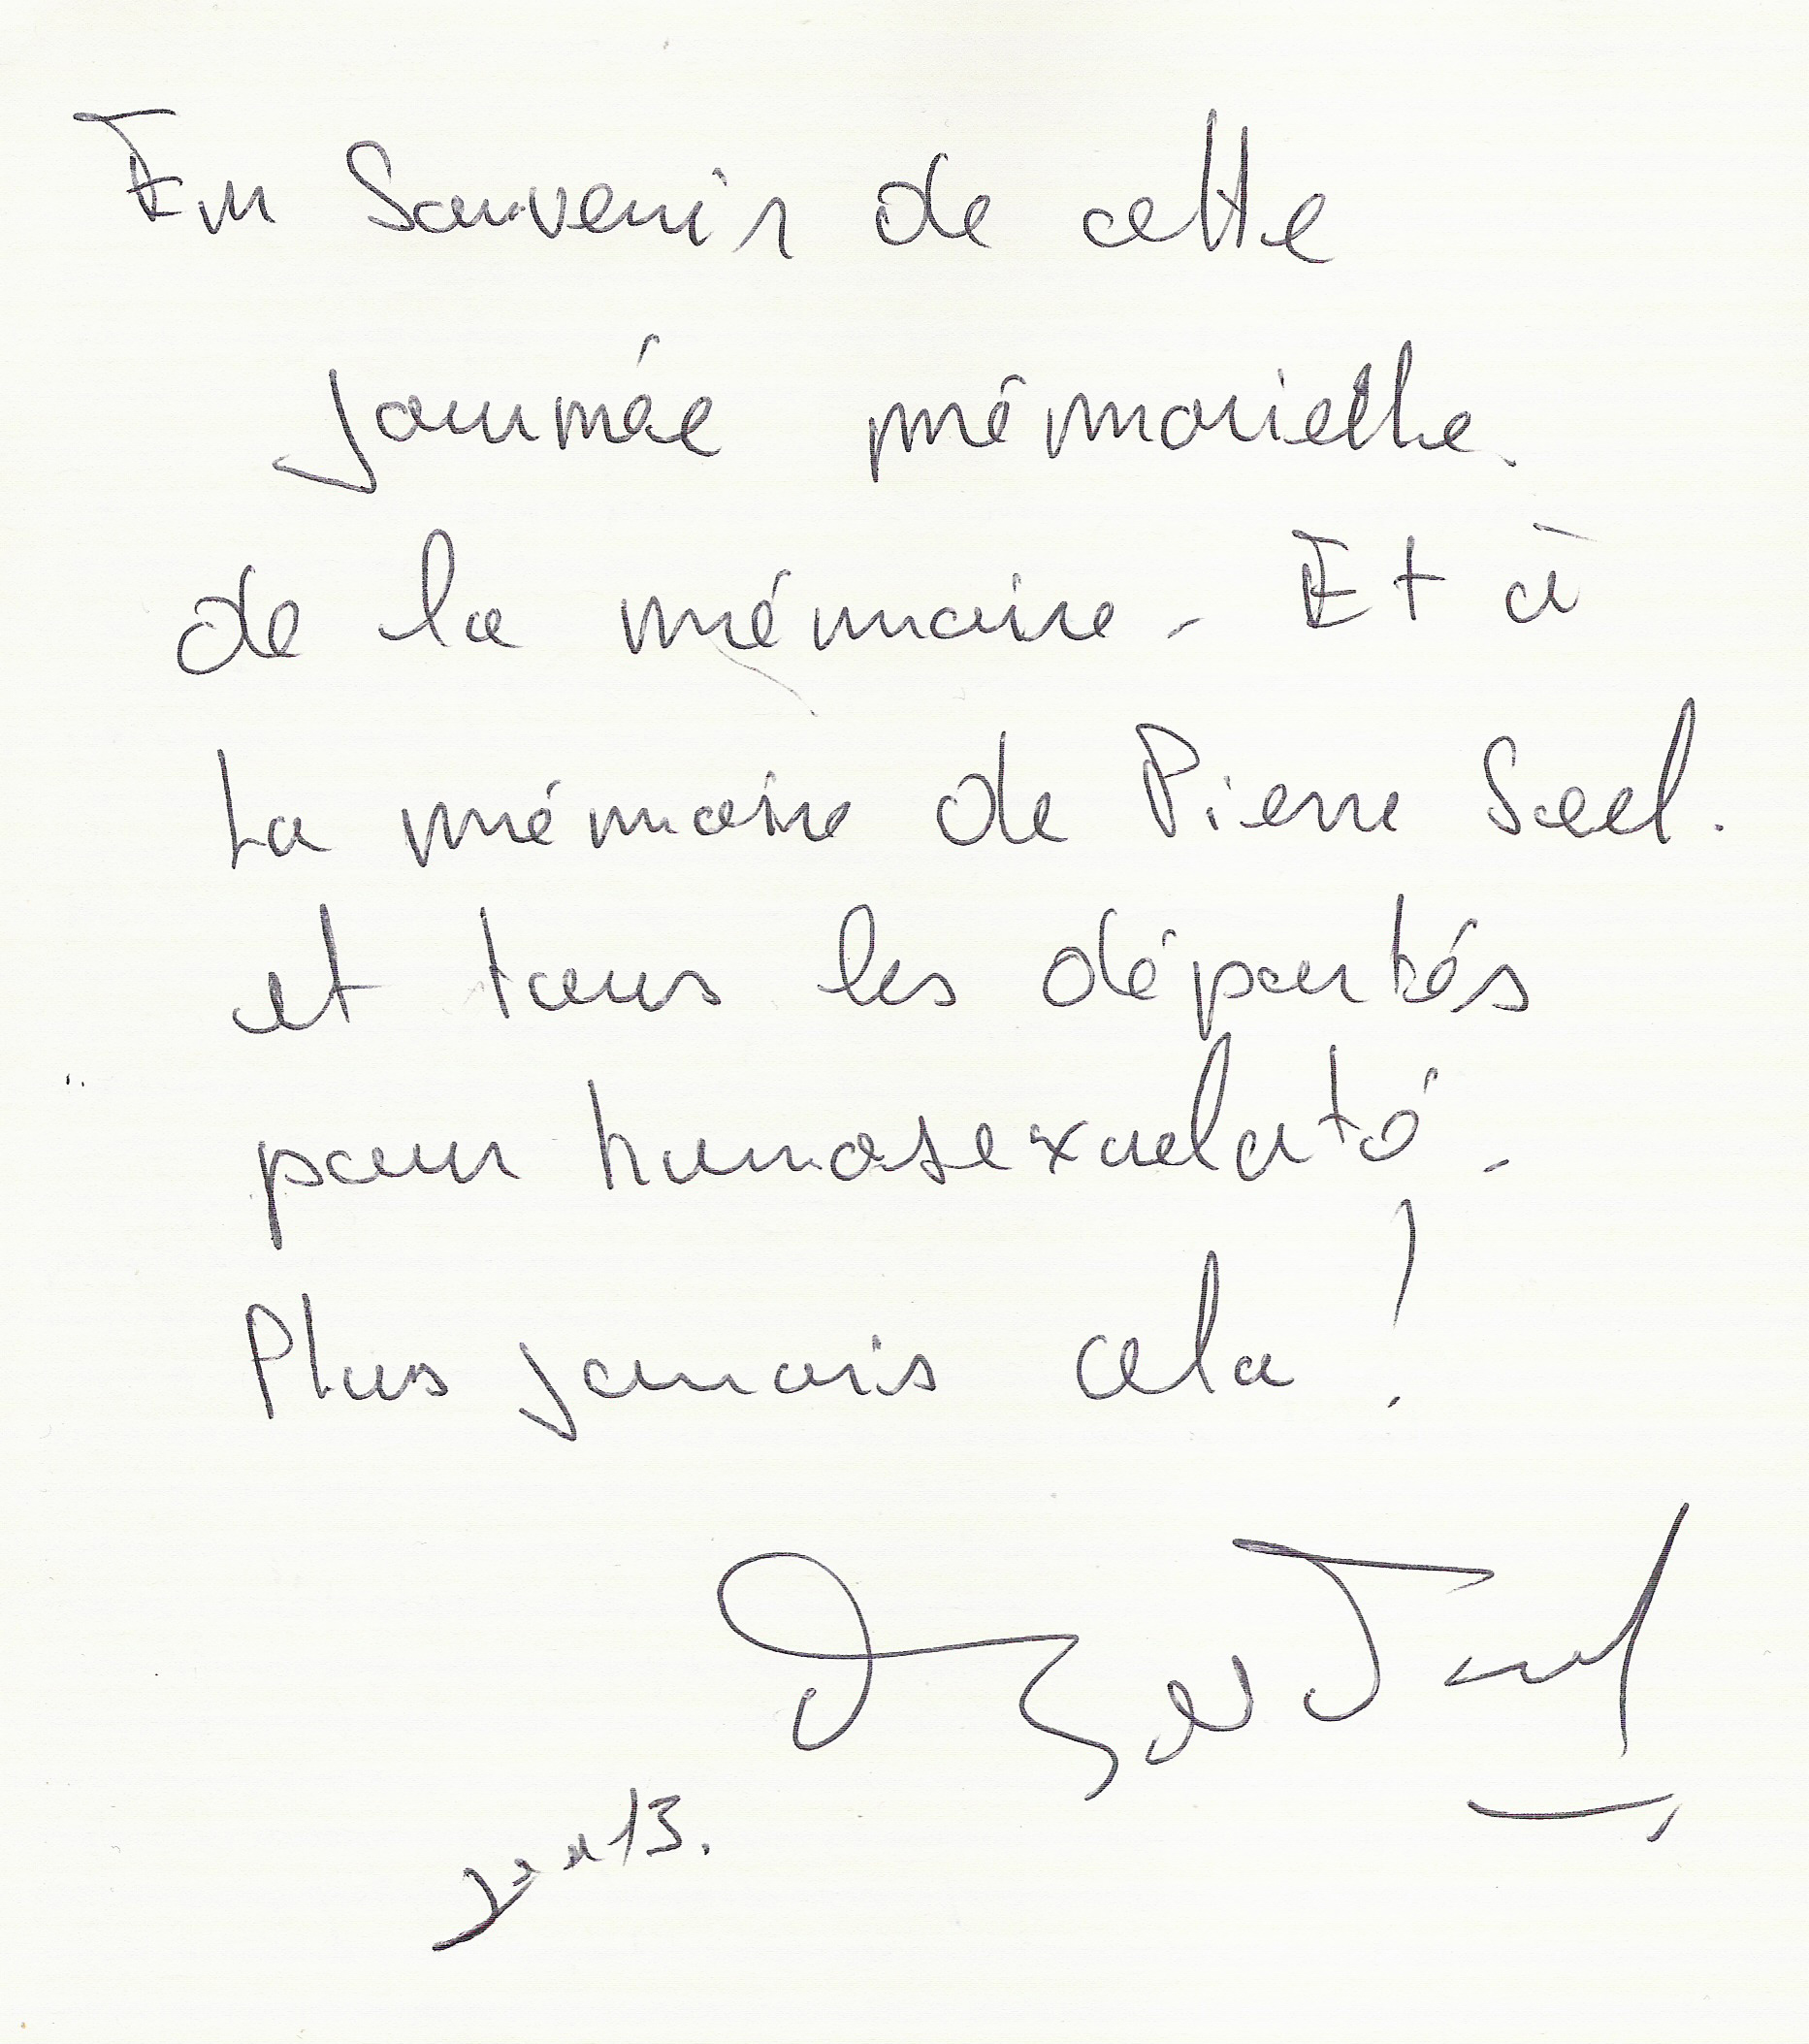 En Souvenir de cette
journée mémorielle
de la mémoire. Et à
La mémoire de Pierre Seel.
et tous les déportés
pour homosexualité.
Plus jamais cela !
13.